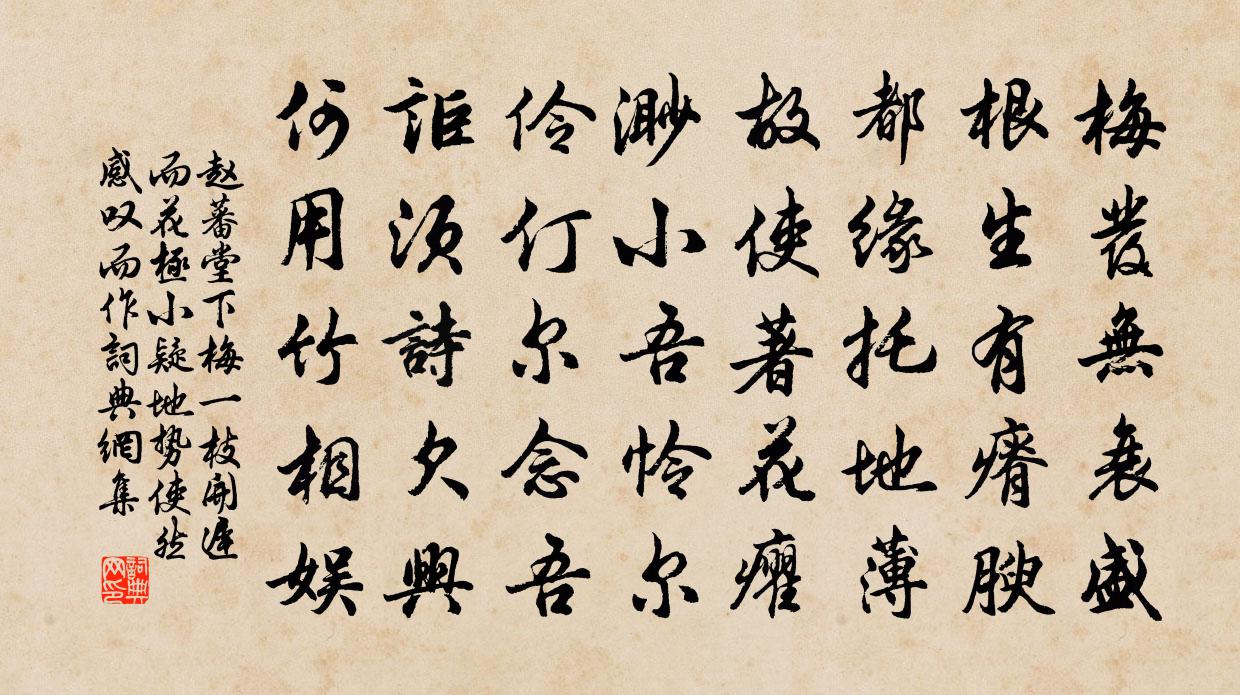 梅發無衰盛
根生有瘠腴
都緣托地薄
故使著花癯
渺小吾怜尔
伶仃尔念吾
詎須詩久興
何用竹相娱
赵蕃堂下梅一枝開遲
而花極小疑地势使然
感叹而作詞典網集
詞典
网印